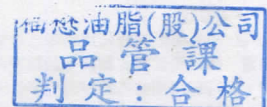 福懋油脂(股)公司
品管課
判定：合格